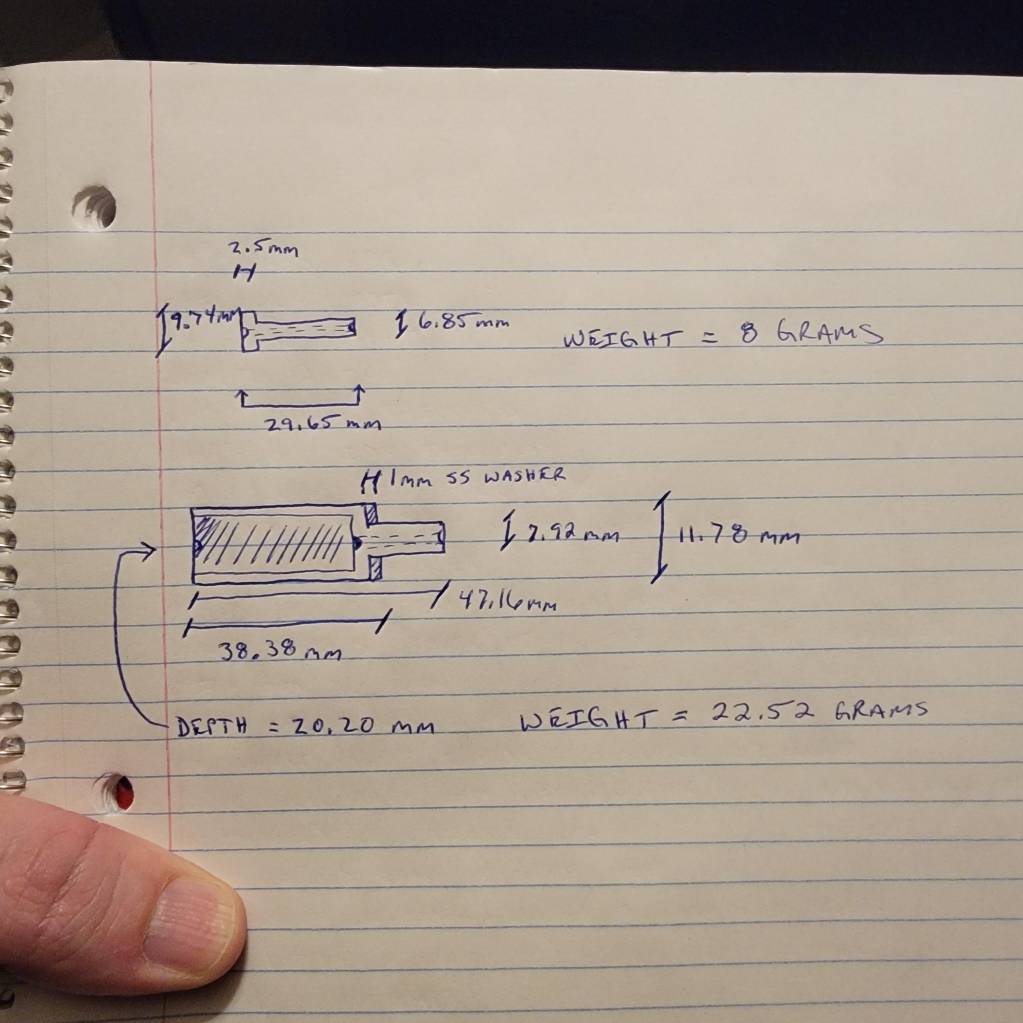 2.5mm
9.74mm
6.85mm
WEIGHT = 8 GRAMS
29.65 mm
1mm SS WASHER
7.92 mm
11.78 mm
47.16mm
38.38 mm
DEPTH = 20.20 mm
WEIGHT = 22.52 GRAMS